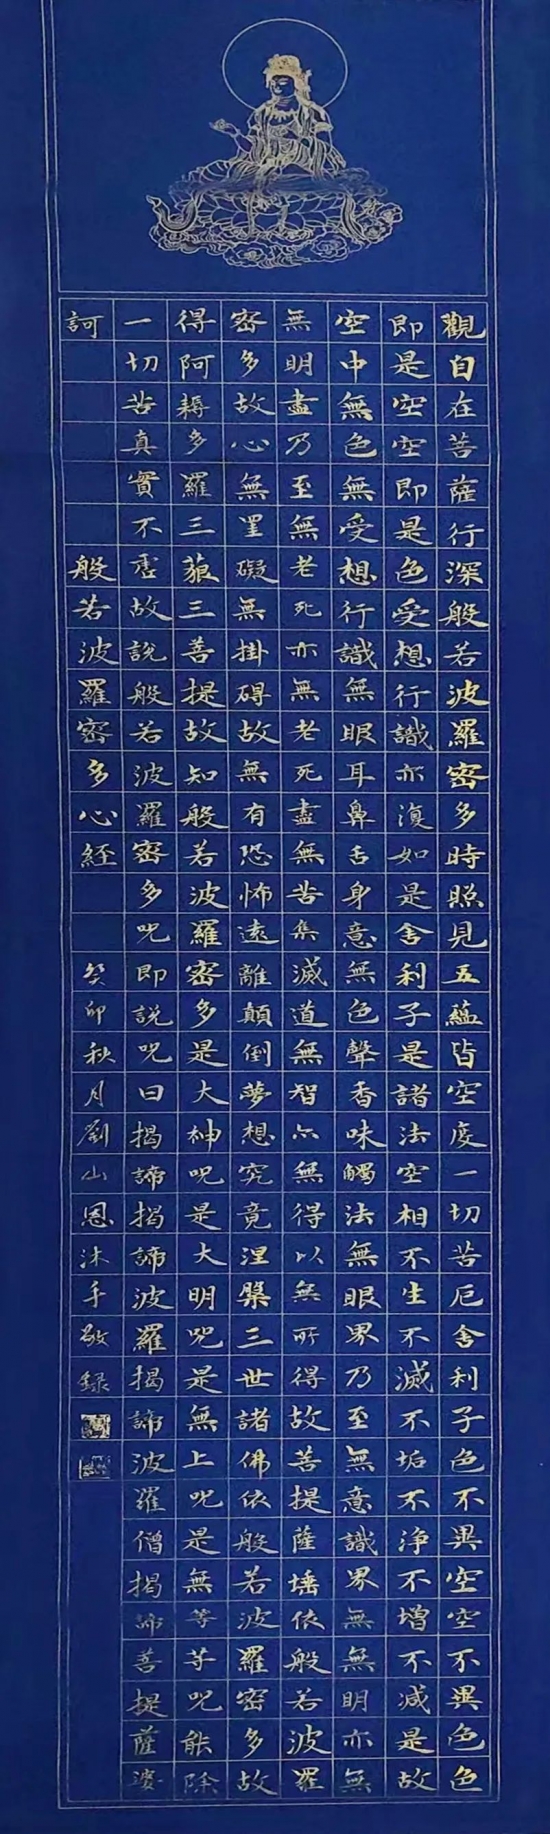 觀自在菩薩行深般若波羅密多時照見五蘊皆空度一切苦厄舍利子色不異空空不異色色
即是空空即是色受想行識亦復如是舍利子是諸法空相不生不滅不垢不淨不增不減是故
空中無色無受想行識無眼耳鼻舌身意無色聲香味觸法無眼界乃至無意識界無無明亦無
無明盡乃至無老死亦無老死盡無苦集滅道無智亦無得以無所得故菩提薩埵依般若波羅
密多故心無罣礙無掛碍故無有恐怖遠離顛倒夢想究竟涅槃三世諸佛依般若波羅密多故
得阿耨多羅三藐三菩提故知般若波羅密多是大神呪是大明呪是無上呪是無等等呪能除
一切苦真實不虛故說般若波羅密多呪即說呪曰揭諦揭諦波羅揭諦波羅僧揭諦菩提薩婆
訶 般若波羅密多心經 癸卯秋月劉山恩沐手敬錄